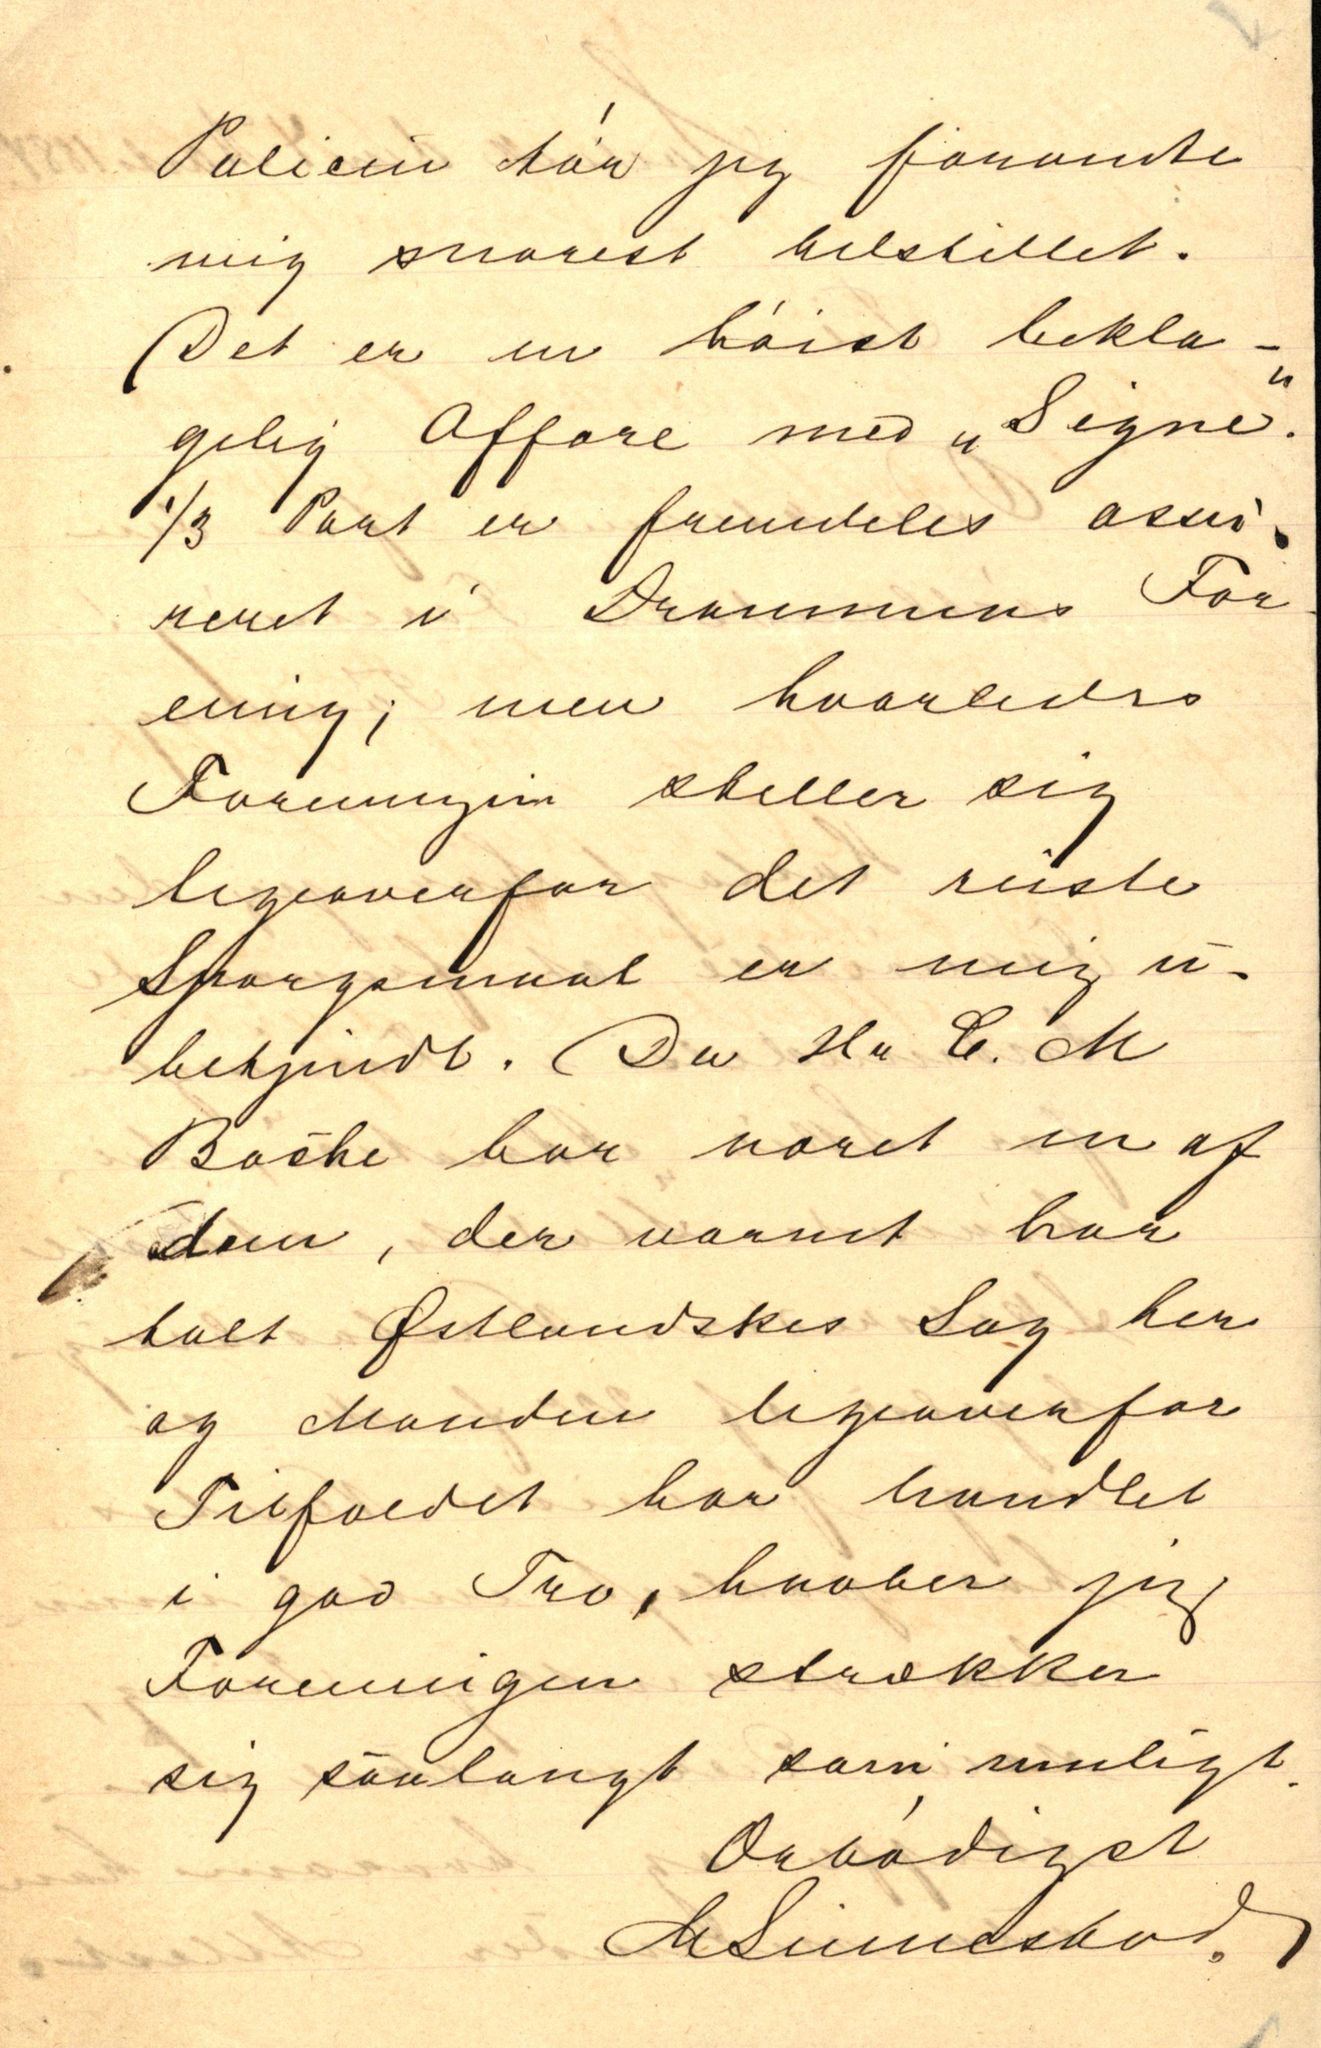 Policen tør jeg forvente
mig snarest tilstillet.
Det er en höist bekla-
gelig Affære med „Signe".
1/3 Part er fremdeles assu-
reret i Drammens For-
ening; men hvorledes
Foreningen stiller sig
ligeoverfor det reiste
Spørgsmaal er mig u-
bekjendt. Da Hr C. M
Bache har været en af
dem, der varmt har
talt Østlandskes Sag her
og Manden ligeoverfor
Tilfældet har handlet
i god Tro, haaber jeg
Foreningen strækker
sig saalangt som muligt.
Ærbødigst